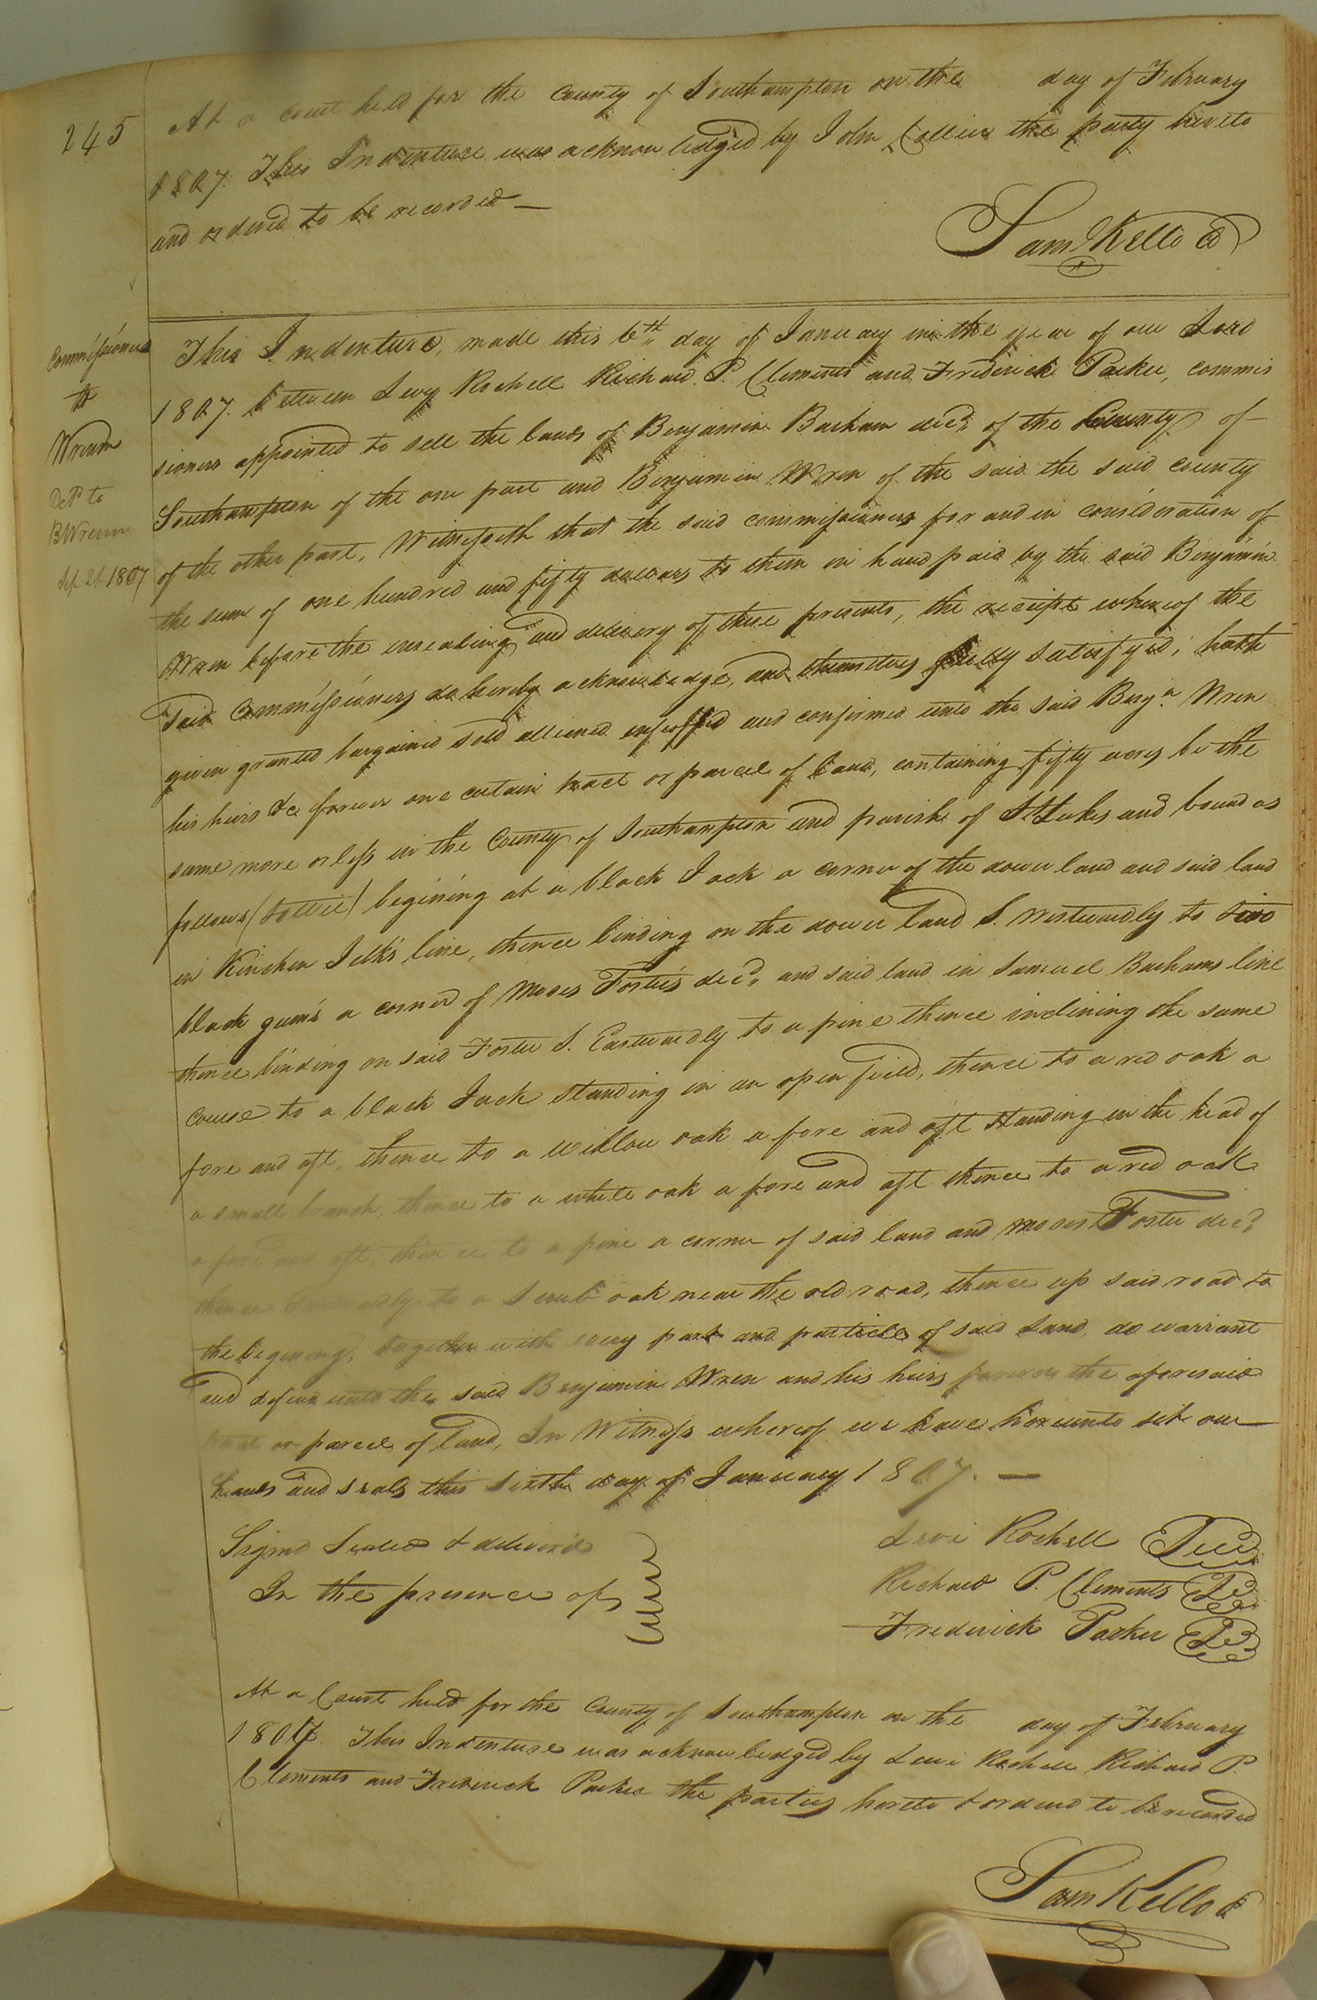 245
At a Court held for the County of Southampton on the day of February
1807. This Indenture was acknowledged by John Collier the party hereto
and ordered to be recorded —
Sam Kello Cl
Commissioners
to
Wrenn
Del'd to
B Wrenn
1807
This Indenture, made this 6th day of January in the year of our Lord
1807. between Levy Rochell Richard P. Clements and Frederick Parker, commis
sioners appointed to sell the lands of Benjamin Barham decd. of the County of
Southampton of the one part and Benjamin Wren of the said the said county
of the other part, Witnesseth that the said commissioners for and in consideration of
the sum of one hundred and fifty dollars to them in hand paid by the said Benjamin
Wren before the ensealing and delivery of these presents, the receipt whereof the
said Commissioners do hereby acknowledge, and themselves fully satisfyed; hath
given granted bargained sold aliened enfeoffed and confirmed unto the said Benja. Wren
his heirs &c forever one certain tract or parcel of land, containing fifty acres be the
same more or less in the County of Southampton and parish of St Lukes and bound as
follows (towit) begining at a black Jack a corner of the dower land and said land
in Kinchen Jelks line, thence binding on the dower land S. Westwardly to two
black gum's a corner of Moses Foster's decd, and said land in Samuel Barhams line
thence binding on said Foster S. Eastwardly to a pine thence inclining the same
course to a black Jack standing in an open field, thence to a red oak a
fore and aft, thence to a willow oak a fore and aft standing in the head of
a small branch, thence to a white oak a fore and aft thence to a red oak
a fore and aft, thence to a pine a corner of said land and Moses Foster decd
thence to a Scrub oak near the old road, thence up said road to
the begining, together with every part and particle of said land do warrant
and defend unto the said Benjamin Wren and his heirs forever the aforesaid
tract or parcel of land, In Witness whereof we have hereunto set our
hands and seals this sixth day of January 1807. —
Signed Sealed & deliver'd
In the presence of
Levi Rochell
Richard P. Clements
Frederick Parker
At a Court held for the County of Southampton on the day of February
1807. This Indenture was acknowledged by Levi Rochell Richard P.
Clements and Frederick Parker the parties hereto & ordered to be recorded
Sam Kello Cl